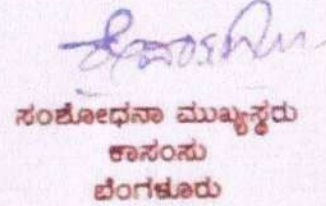 ಸಂಶೋಧನಾ ಮುಖ್ಯಸ್ಥರು
ಕಾಸಂಸು
ಬೆಂಗಳೂರು